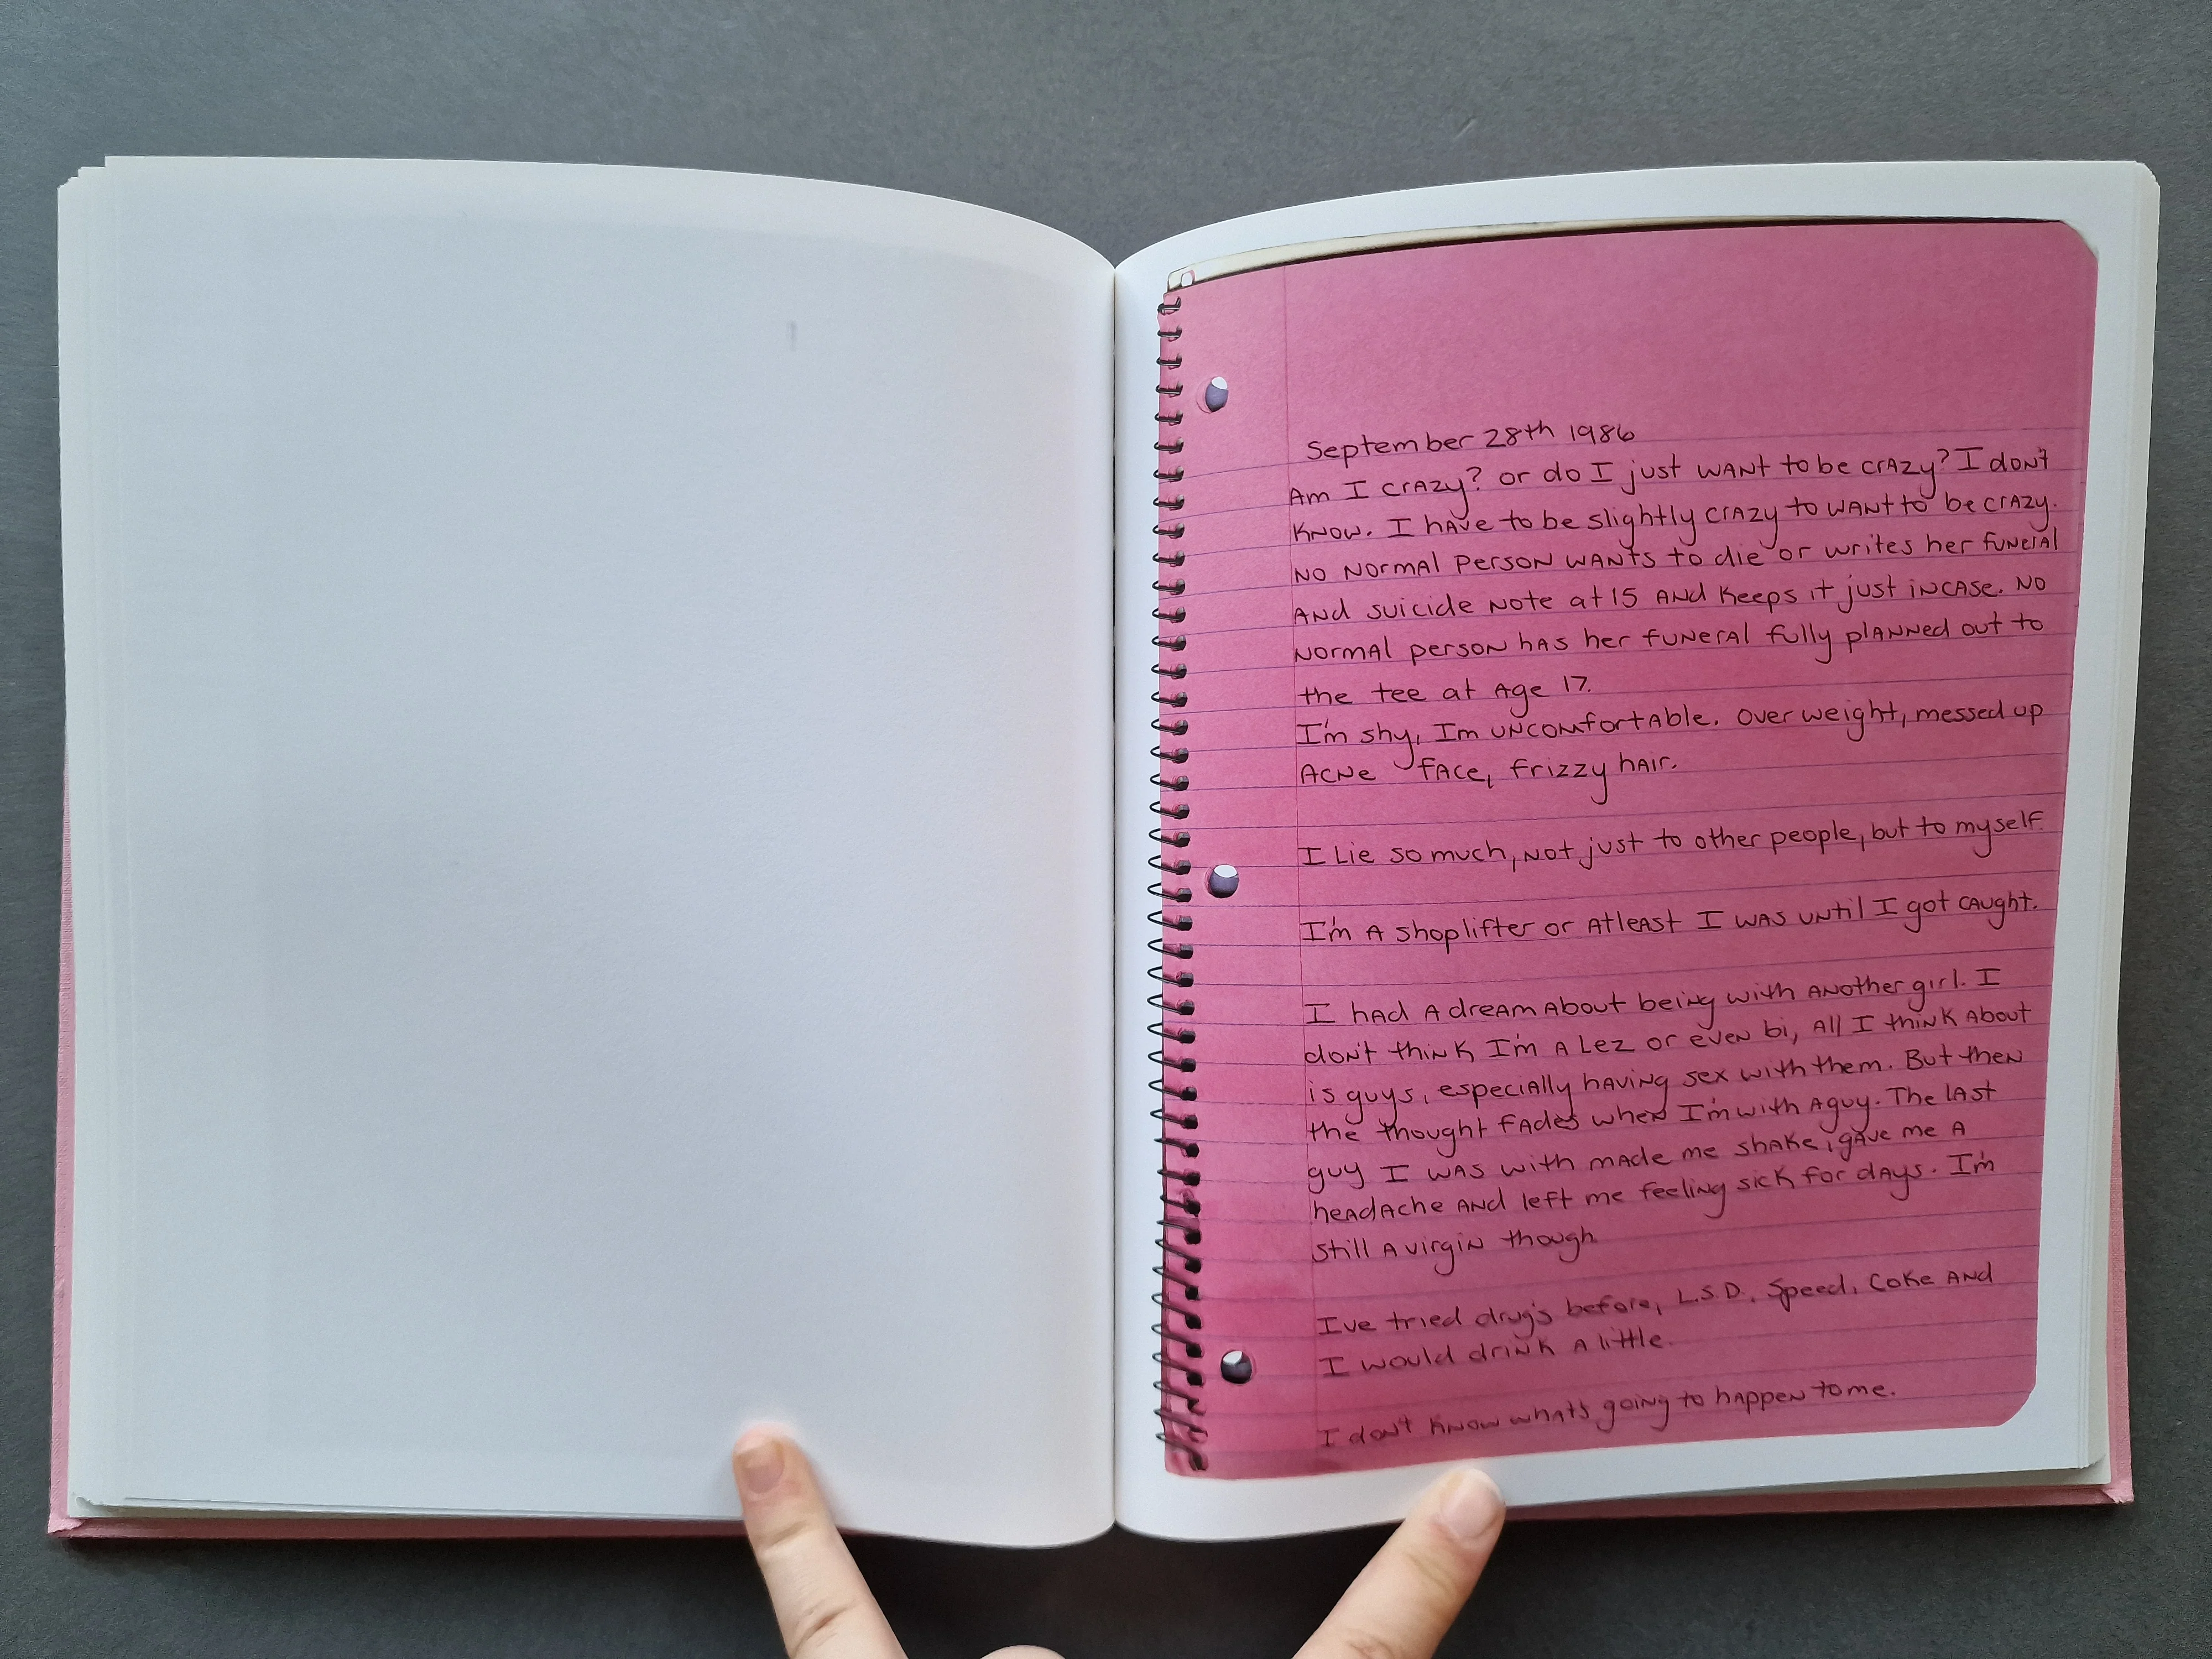 September 28th 1986
Am I crazy? or do I just want to be crazy? I don't
know. I have to be slightly crazy to want to be crazy.
No normal person wants to die or writes her funeral
and suicide note at 15 and keeps it just incase. No
normal person has her funeral fully planned out to
the tee at age 17.
I'm shy, Im uncomfortable. Over weight, messed up
acne face, frizzy hair.
I Lie so much, not just to other people, but to myself.
I'm a shoplifter or atleast I was until I got caught.
I had a dream about being with another girl. I
don't think I'm a Lez or even bi, all I think about
is guys, especially having sex with them. But then
the thought fades when I'm with a guy. The last
guy I was with made me shake, gave me a
headache and left me feeling sick for days. I'm
still a virgin though.
I've tried drug's before, L.S.D., Speed, Coke and
I would drink a little.
I don't know whats going to happen to me.